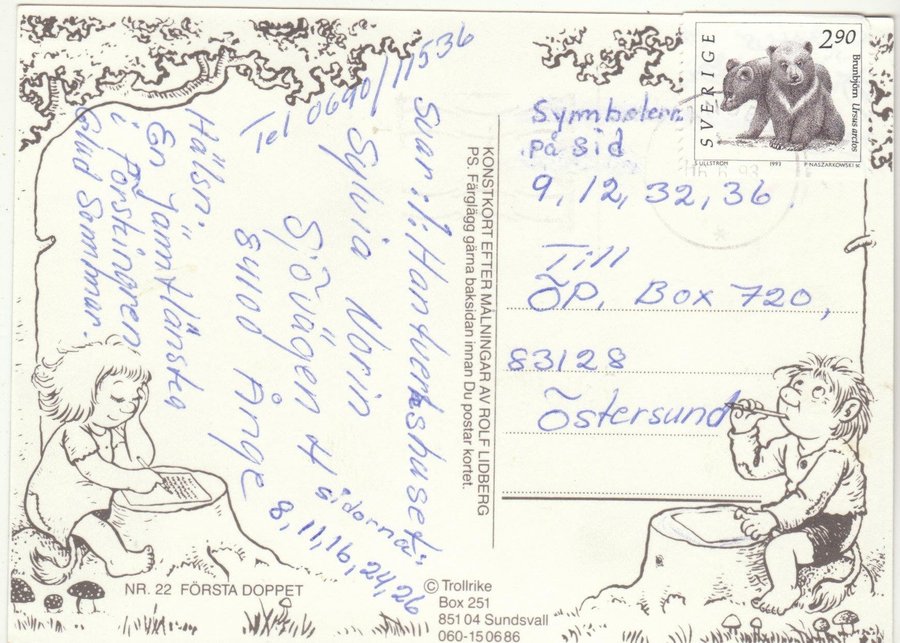 Tel 0640/11536
Svar:1: Hantverkshuset
Sylvia Norin
Sjövägen 4
84100 Ånge
sidorna:
8, 11, 16, 24, 26
Hälsn:
En Jämtlänska
i Förskingren
Glad Sommar.
KONSTKORT EFTER MÅLNINGAR AV ROLF LIDBERG
PS. Färglägg gärna baksidan innan Du postar kortet.
SVERIGE
2.90
Brunbjörn Ursus arctos
S ULLSTRÖM
1993
P NASZARKOWSKI sc
Symbolerna
på sid
9, 12, 32, 36.
Till
ÖP, Box 720,
83128
Östersund
NR. 22 FÖRSTA DOPPET
© Trollrike
Box 251
851 04 Sundsvall
060-15 06 86